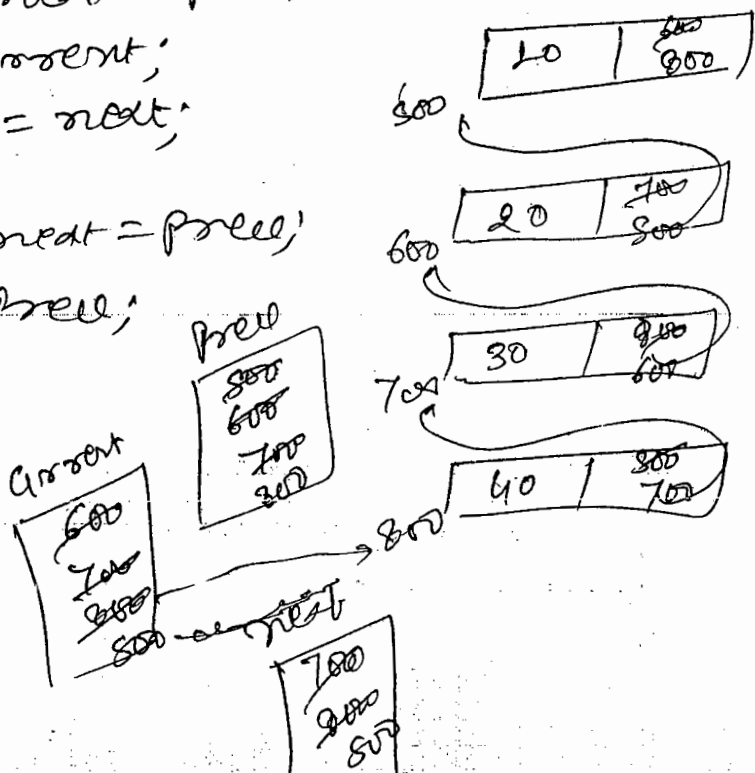 rrent;
= next;
next = prev;
prev;
10
800
500
20
700
500
600
30
800
600
700
40
500
700
800
Prev
500
600
700
800
Current
600
700
800
500
next
700
800
500